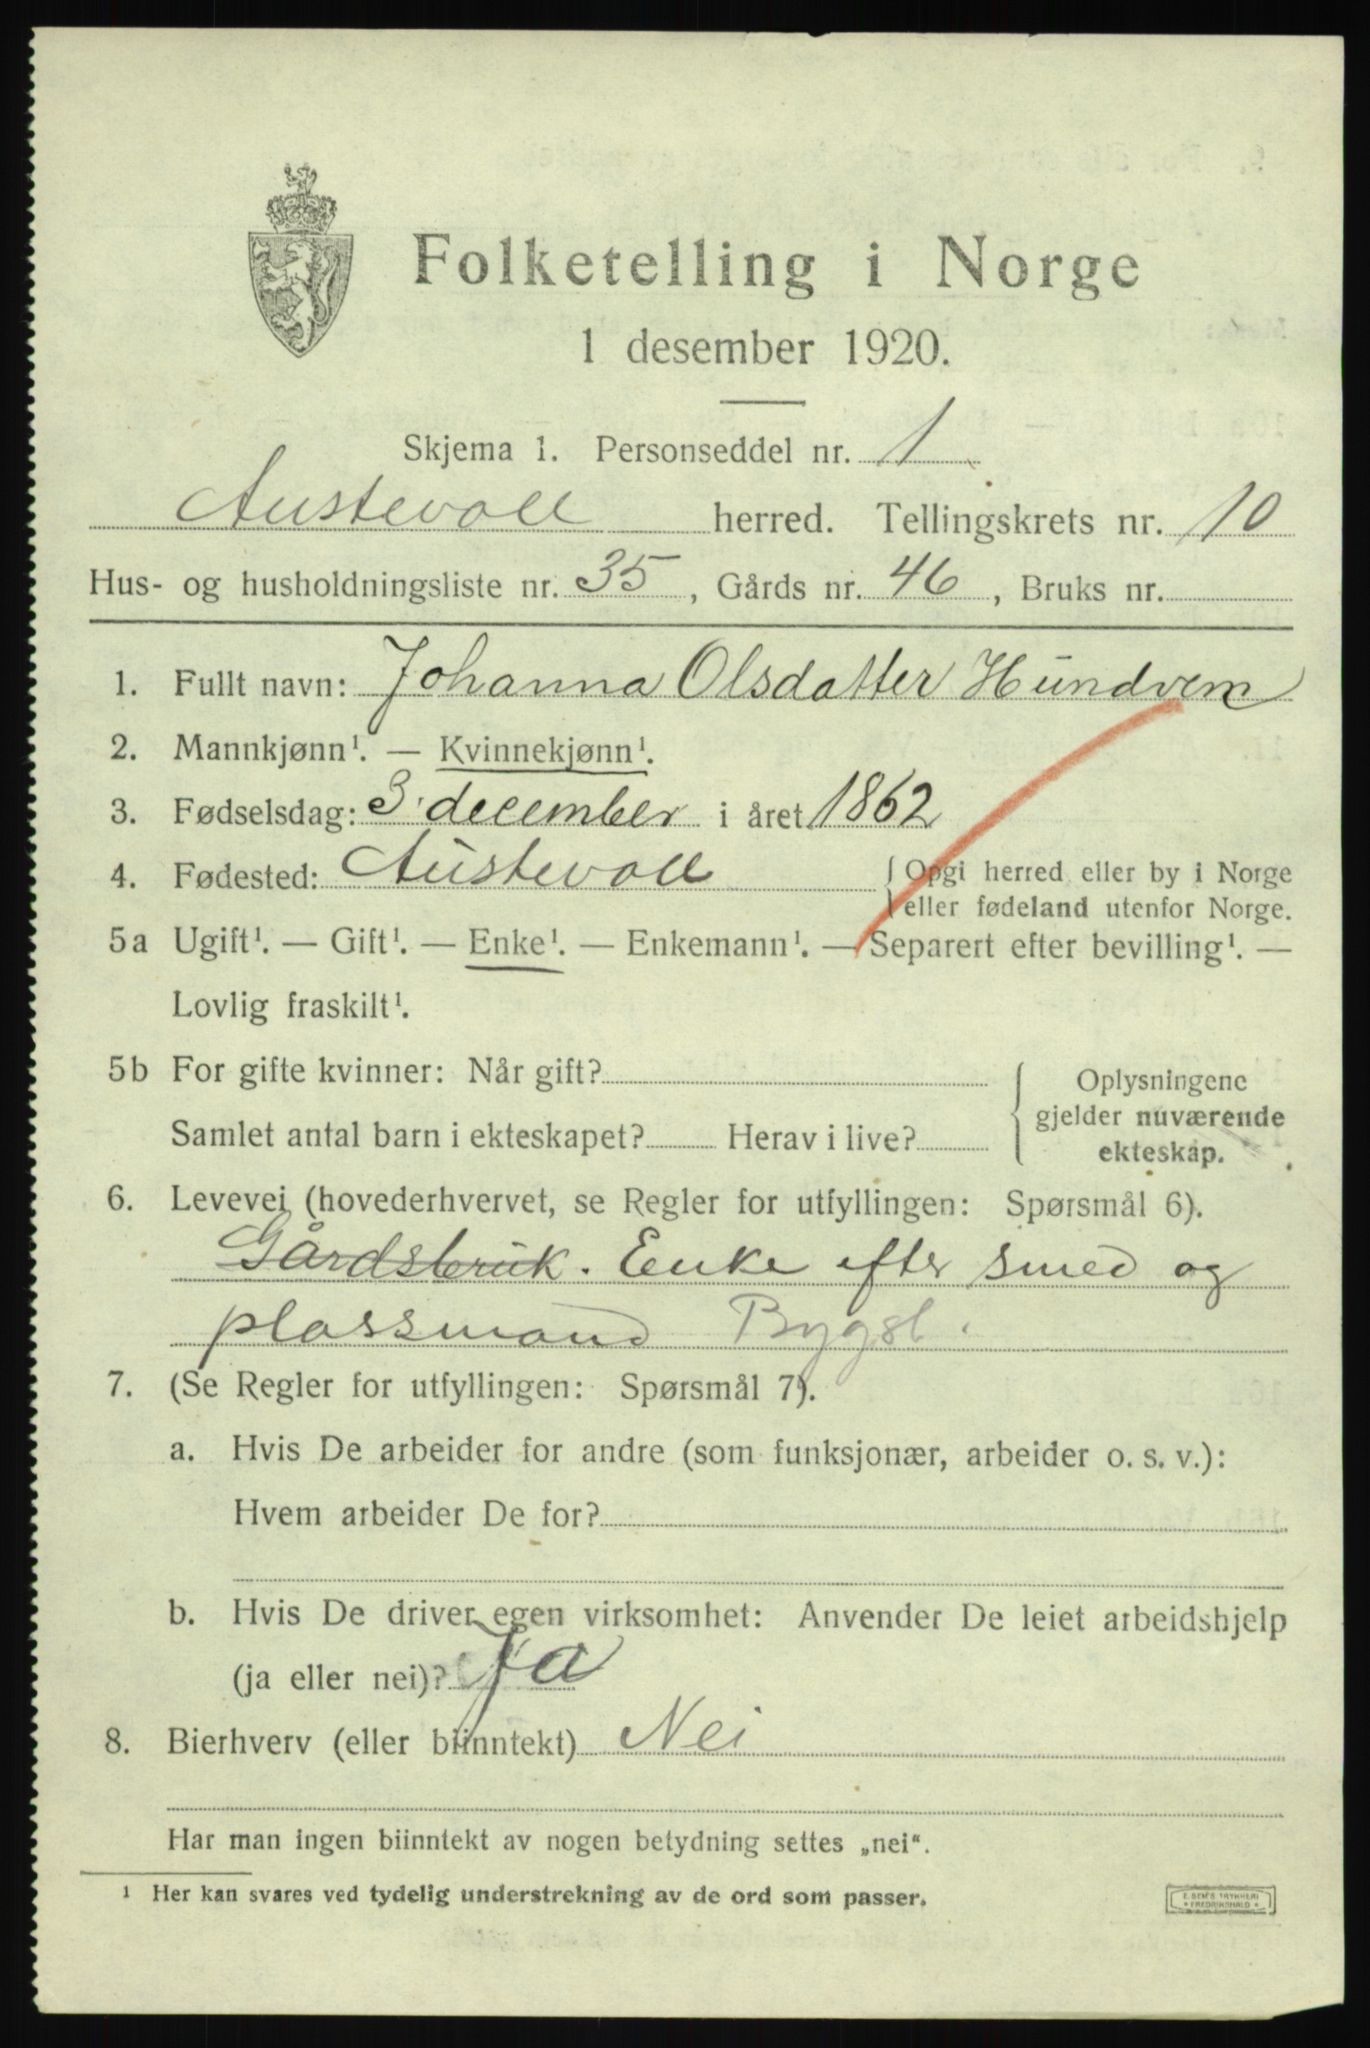 Folketelling i Norge
1 desember 1920.
Skjema 1. Personseddel nr. 1
Austevoll herred. Tellingskrets nr. 10
Hus- og husholdningsliste nr. 35, Gårds nr. 46, Bruks nr.
1. Fullt navn: Johanna Olsdatter Hundvem
2. Mannkjønn¹. — Kvinnekjønn¹.
3. Fødselsdag: 3 december i året 1862
4. Fødested: Austevoll { Opgi herred eller by i Norge
eller fødeland utenfor Norge.
5a Ugift¹. — Gift¹. — Enke¹. — Enkemann¹. — Separert efter bevilling¹. —
Lovlig fraskilt¹.
5b For gifte kvinner: Når gift?
Samlet antal barn i ekteskapet? Herav i live?
Oplysningene
gjelder nuværende
ekteskap.
6. Levevei (hovederhvervet, se Regler for utfyllingen: Spørsmål 6).
Gårdsbruk. Enke efter smed og
plassmand Bygsl.
7. (Se Regler for utfyllingen: Spørsmål 7).
a. Hvis De arbeider for andre (som funksjonær, arbeider o. s. v.):
Hvem arbeider De for?
b. Hvis De driver egen virksomhet: Anvender De leiet arbeidshjelp
(ja eller nei)? Ja
8. Bierhverv (eller biinntekt) Nei
Har man ingen biinntekt av nogen betydning settes „nei“.
¹ Her kan svares ved tydelig understrekning av de ord som passer.
E. SEM'S TRYKKERI
FREDRIKSHALD